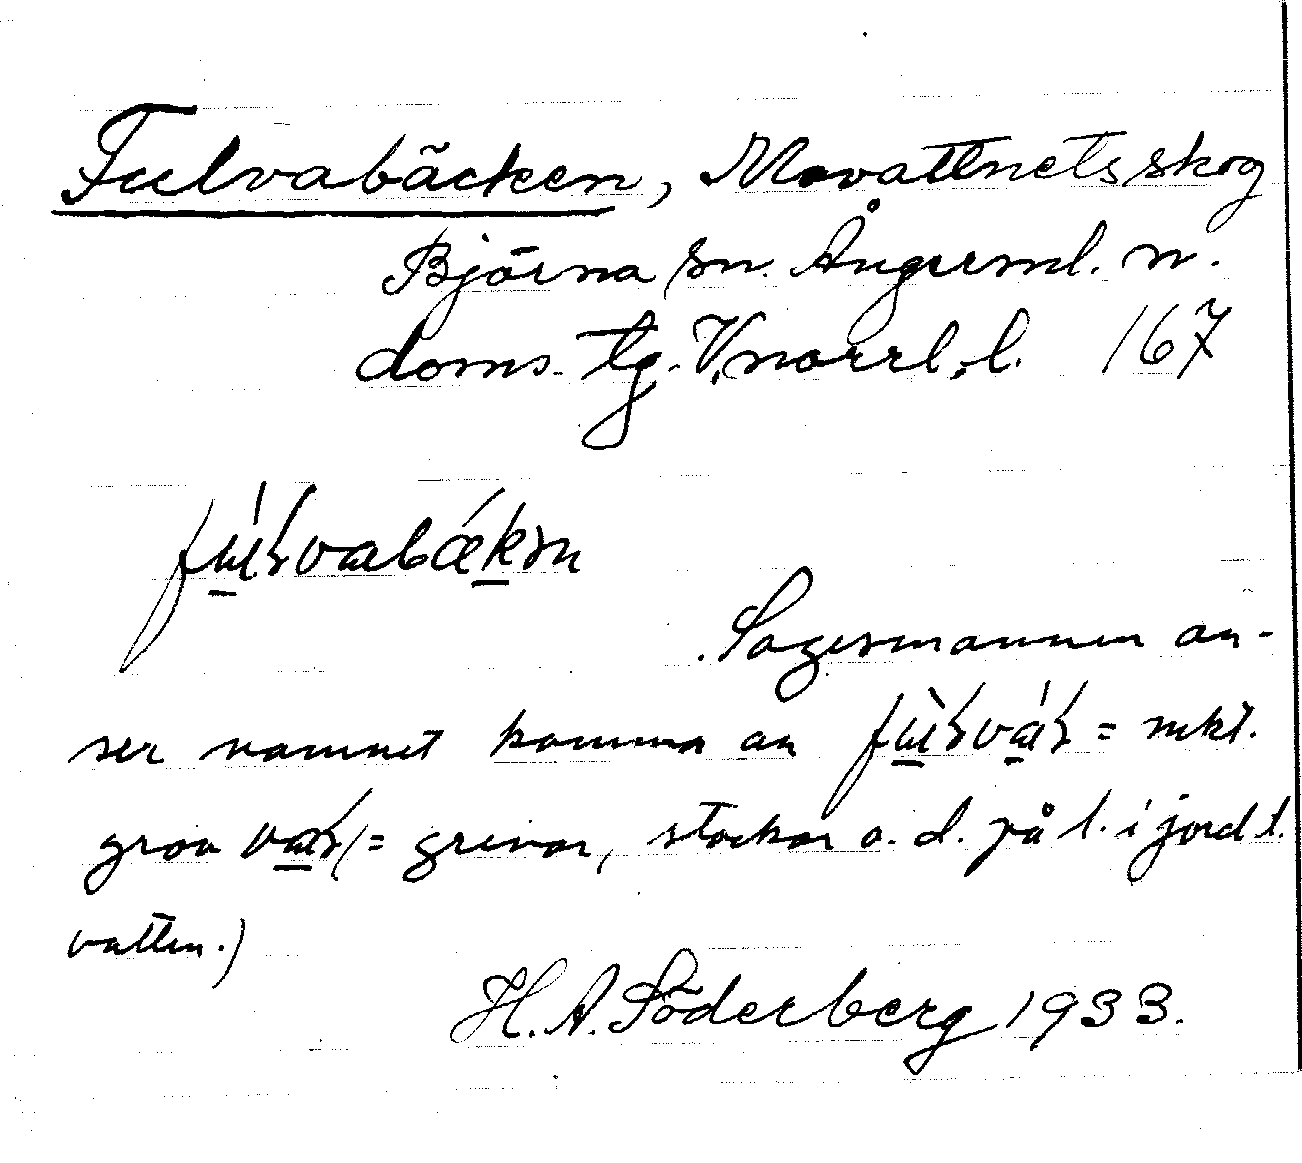 Fulvabäcken, Movattnets skog
Björna sn. Ångerml. n.
doms. tg. V. norrl. l. 167
Sagesmannen an-
ser namnet komma an = mkt.
grov (= grenar, stockar o. d. på l. i jord l.
vatten.)
H. A. Söderberg 1933.